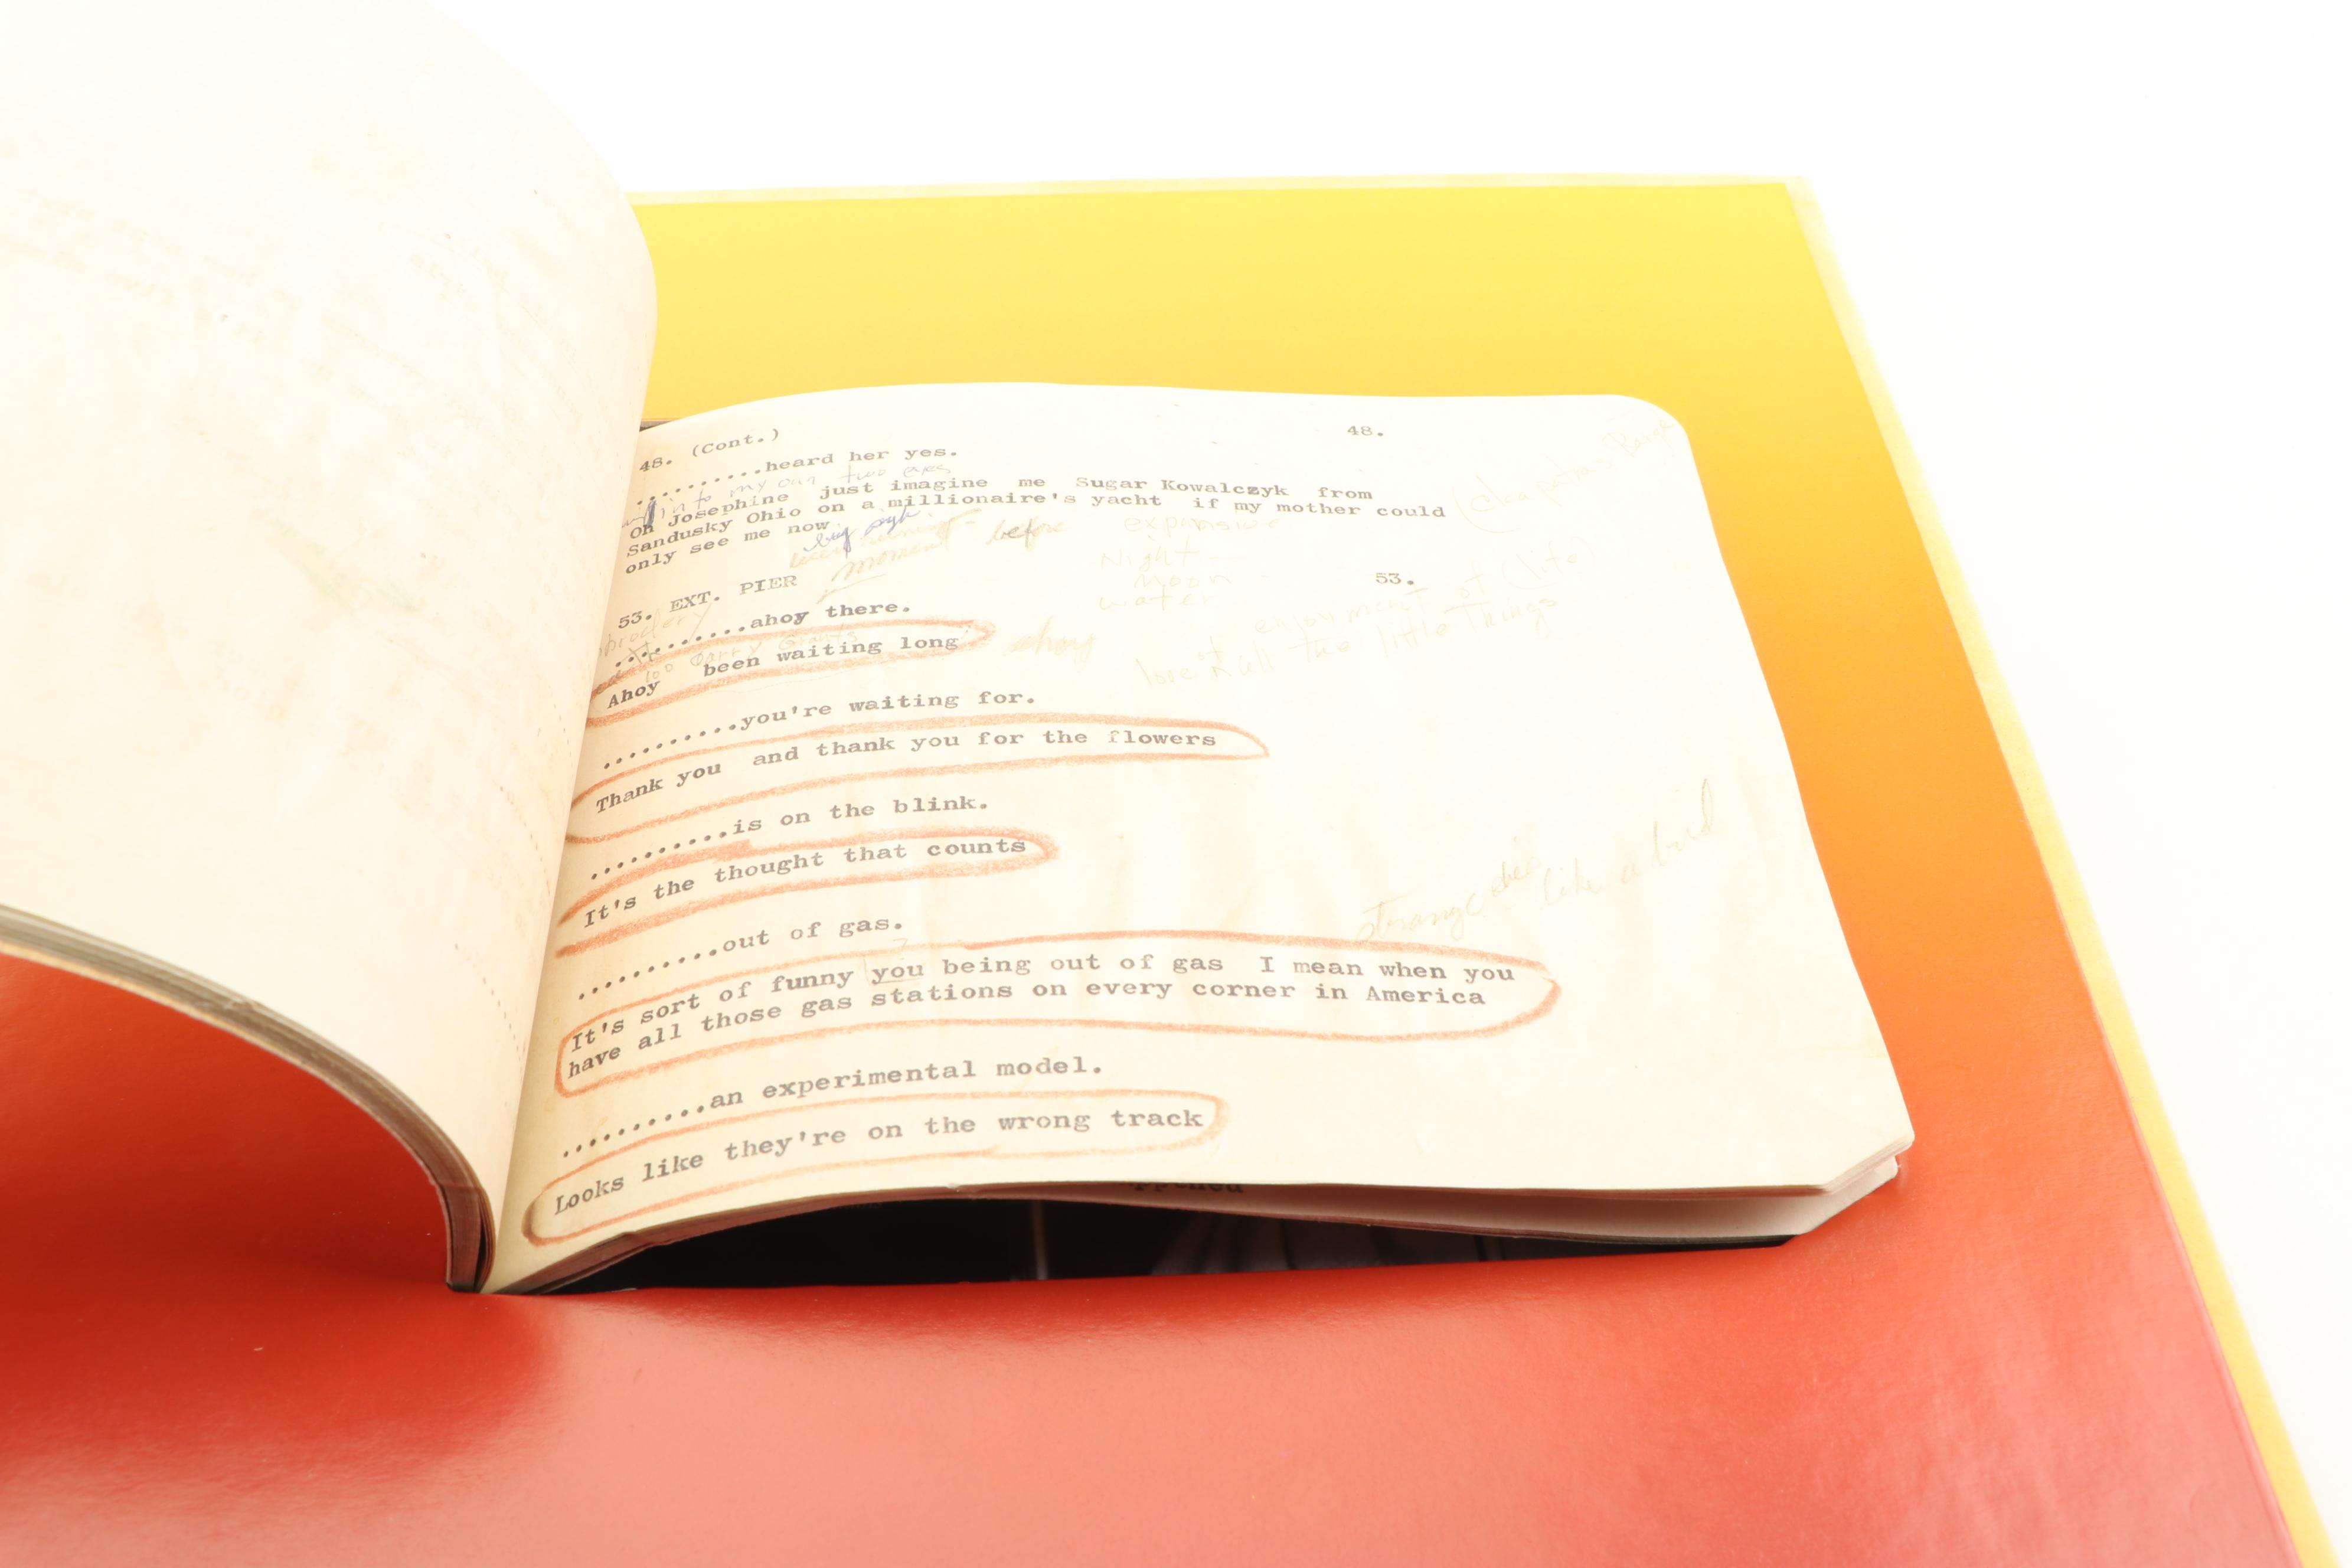 48. (Cont.) 48.
..........heard her yes.
into my own two eyes
Oh Josephine just imagine me Sugar Kowalczyk from
Sandusky Ohio on a millionaire's yacht if my mother could
only see me now
big sigh
moment - before
expansive
Night
Moon
water
53. EXT. PIER 53.
..........ahoy there.
100 Carry Grants
Ahoy been waiting long
ahoy
enjoyment of (into)
love all the little things
..........you're waiting for.
Thank you and thank you for the flowers
..........is on the blink.
It's the thought that counts
strange
like a bird
..........out of gas.
It's sort of funny you being out of gas I mean when you
have all those gas stations on every corner in America
..........an experimental model.
Looks like they're on the wrong track